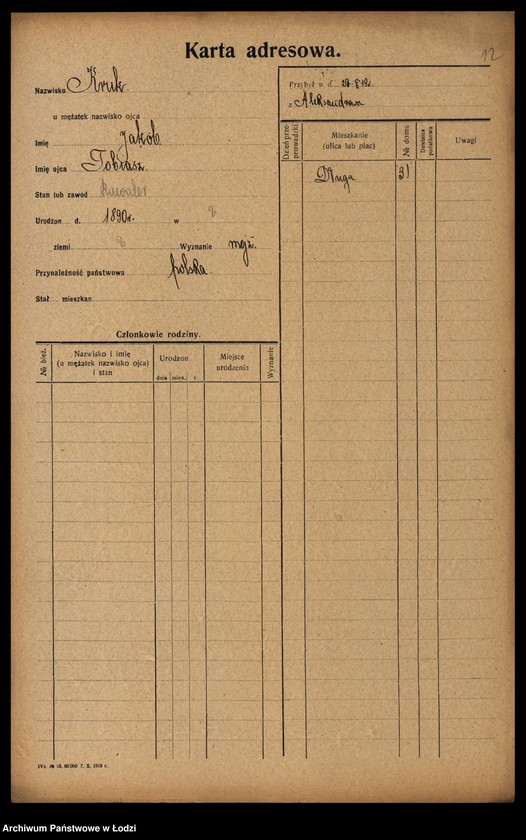 Karta adresowa.
12
Nazwisko Kruk
u mężatek nazwisko ojca
Imię Jakób
Imię ojca Tobiasz
Stan lub zawód Kawaler
Urodzon d. 1890 r. w
ziemi Wyznanie mojż.
Przynależność państwowa polska.
Stał mieszkan
Przybył w d.
z Aleksandrowa
Dzień przeprowadzki
Mieszkanie
(ulica lub plac)
№ domu
Dzielnica podatkowa
Uwagi
Długa 31
Członkowie rodziny.
№ bież.
Nazwisko i imię
(u mężatek nazwisko ojca)
i stan
Urodzon
dnia mies. r.
Miejsce
urodzenia
Wyznanie
7. X. 1919 r.
Archiwum Państwowe w Łodzi